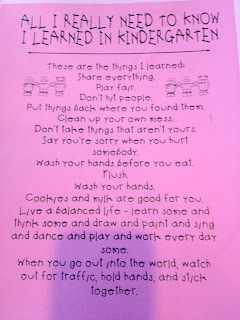 ALL I REALLY NEED TO KNOW
I LEARNED IN KINDERGARTEN
These are the things I learned:
Share everything.
Play fair.
Don't hit people.
Put things back where you found them.
Clean up your own mess.
Don't take things that aren't yours.
Say you're sorry when you hurt
somebody.
Wash your hands before you eat.
Flush.
Wash your hands.
Cookies and milk are good for you.
Live a balanced life - learn some and
think some and draw and paint and sing
and dance and play and work every day
some.
When you go out into the world, watch
out for traffic, hold hands, and stick
together.